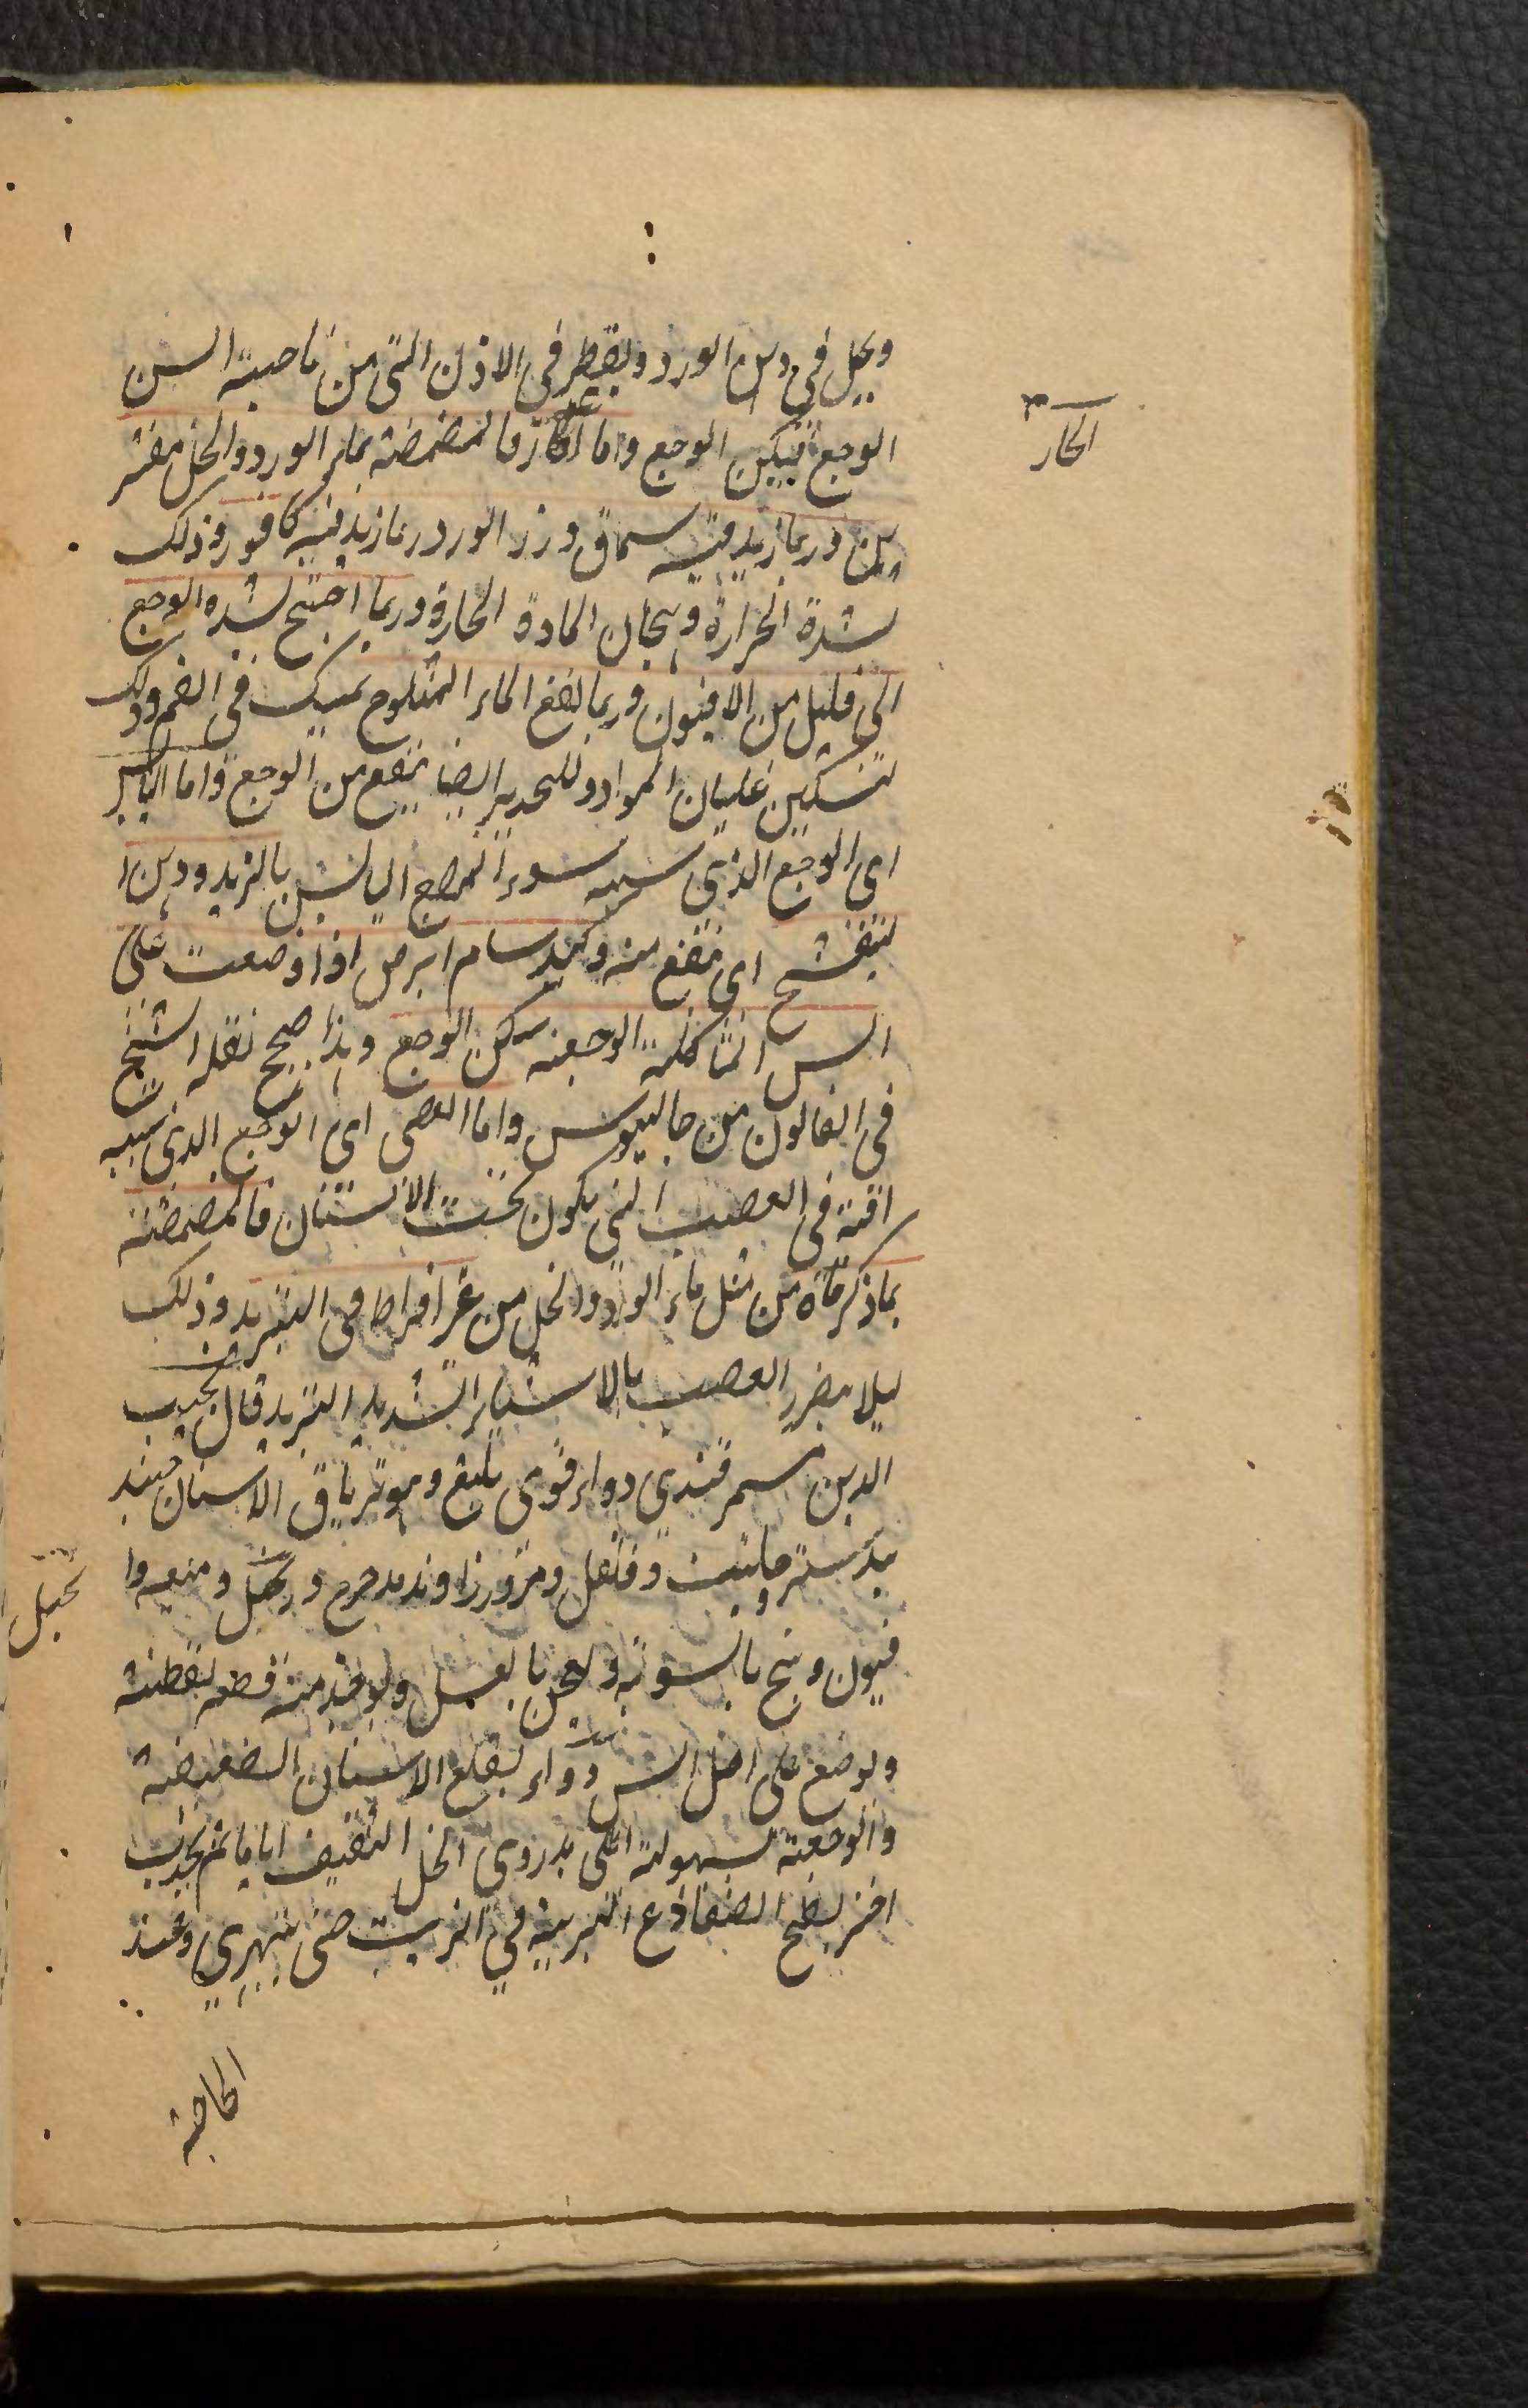 ويحل في دهن الورد ويقطر في الاذن التي من ناحية السن
الوجع فيسكن الوجع واما الحار فالمضمضة بماء الورد والخل مفتر
ين وربما زيد فيه سماق وزر الورد وربما زيد فيه كافور وذلك
لشدة الحرارة وهيجان المادة الحارة وربما احتيج لشدة الوجع
الى قليل من الافيون وربما نفع الماء المثلوج يمسك في الفم وذلك
لتسكين غليان المواد وللتخدير ايضا ينفع من الوجع واما اليابس
اى الوجع الذي سببه سوء المزاج اليابس بالزبد ودهن ا
لبنفسج اى ينفع منه وكبد سام ابرص اذا وضعت على
السن المتاكلة الوجعة سكن الوجع وهذا صحيح نقله الشيخ
في القانون من جالينوس واما العصبي اى الوجع الذي سببه
افة في العصب التي يكون تحت الاسنان فالمضمضة
بما ذكرناه من مثل ماء الورد والخل من غير افراط في التبريد وذلك
ليلا يضرر العصب بالاشياء الشديد التبريد قال نجيب
الدين سمرقندي دواء قوى بليغ وهو ترياق الاسنان جند
بيدستر وحلتيت وفلفل ومر وزراوند مدحرج وزنجبيل وميعه وا
فيون وبنج بالسوية ويعجن بالعسل ويوخذ منه قطعه بقطنة
ويوضع على اصل السن دواء لقلع الاسنان الضعيفة
والوجعة بسهولة اطلى بدردى الخل الثقيف اياما ثم يجذب
اخر يطبخ الضفادع البرية في الزيت حتى يتهرى وعند
الحاجة
الحار